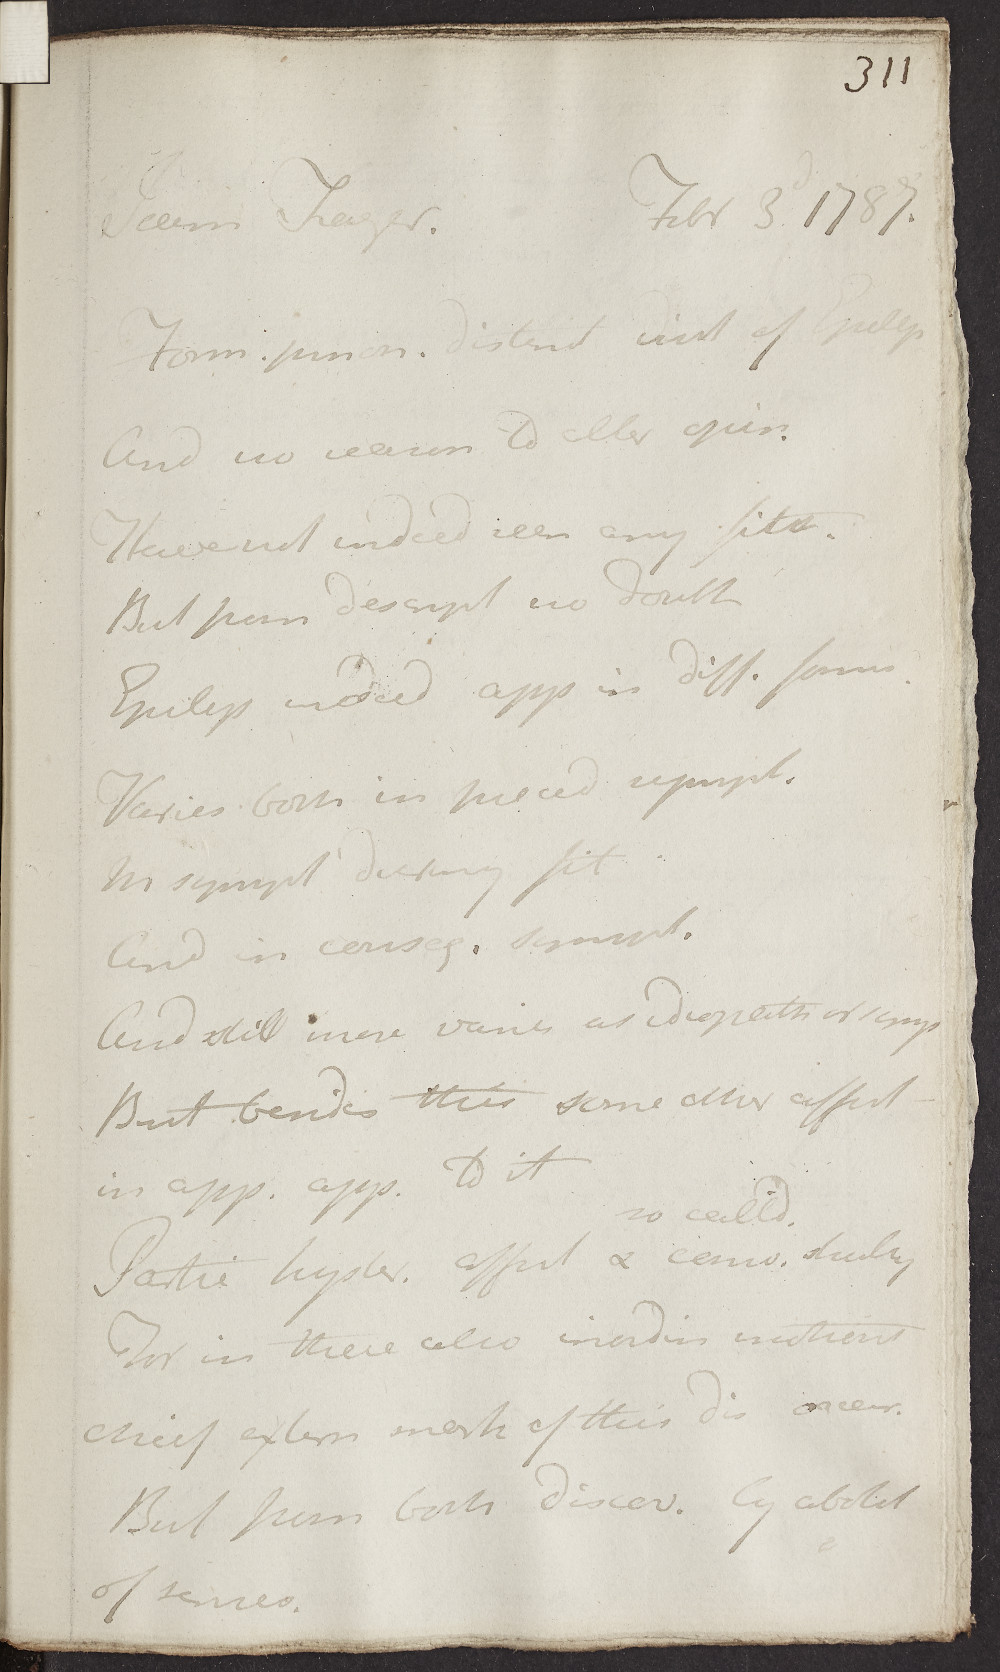 311
Frazer. Febr 3d 1787.
Form. pinon. distent inst of Epilep
And no reason to alter opin.
Have not indeed seen any fits.
But from descript no doubt
Epilep indeed app in diff. forms.
Varies both in preced sympt.
In sympt during fit
And in conseq. sympt.
And still more varies as idiopath or symp
But besides this some other affect
in app. app. to it
so call'd.
Partic hyster. affect & convo. 
For in these also inordin motions
chief extern mark of this dis occur.
But from both discov. by abolit
of senses.